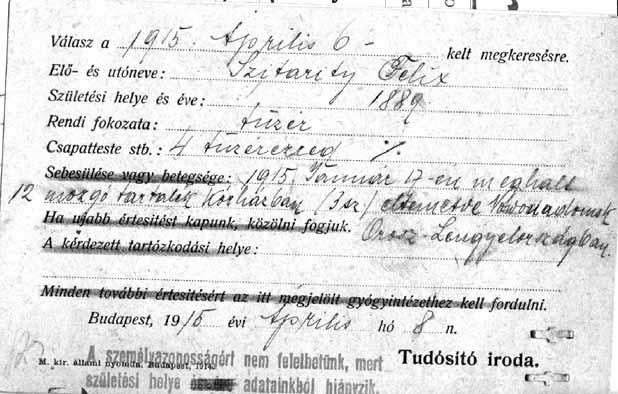 Válasz a 1915. Április 6- kelt megkeresésre.
Elő- és utóneve: Szitarity Felix
Születési helye és éve: 1889
Rendi fokozata: tüzér
Csapatteste stb.: 4 tüzérezred %.
Sebesülése vagy betegsége: 1915 Január 17-en meghalt
12 mozgó tartalék Kórházban (3sz) eltemetve Noworadomsk
Ha ujabb értesitést kapunk, közölni fogjuk. Orosz-Lengyelországban.
A kérdezett tartózkodási helye:
Minden további értesitésért az itt megjelölt gyógyintézethez kell fordulni.
Budapest, 1915 évi Április hó 8 n.
M. kir. állami nyomda. Budapest, 1914. Tudósító iroda.
A személyazonosságért nem felelhetünk, mert
születési helye adatainkból hiányzik.